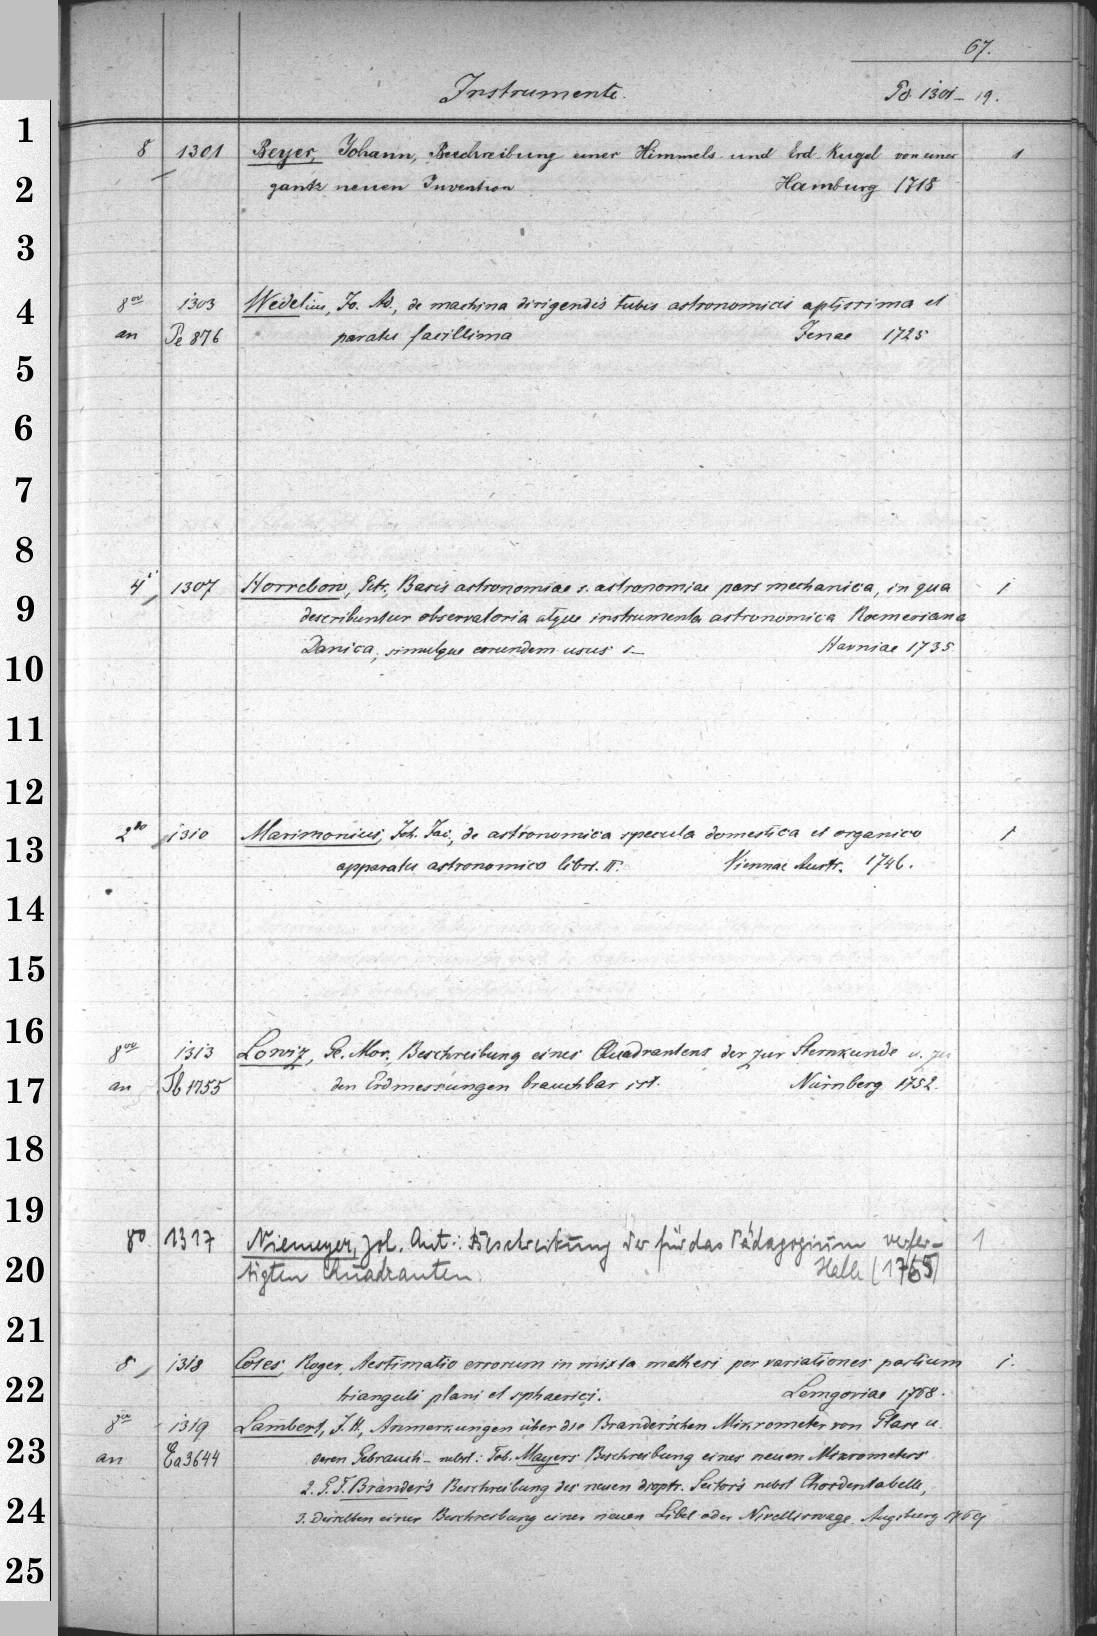 67.
Instrumente.
Pd. 1301-19.
1
8 1301 Beyer, Johann, Beschreibung einer Himmels- und Erd-Kugel von einer 1
2
gantz neuen Invention Hamburg 1718
3
4
8vo 1303 Wedelius, Jo. Ad., de machina dirigendis tubis astronomicis aptissima et
an Pe 876 paratu facillima Jenae 1725
5
6
7
8
4 1307 Horrebow, Petr, Basis astronomiae s. astronomiae pars mechanica, in qua 1
9
describuntur observatoria atque instrumenta astronomica Roemeriana
10
Danica, simulque eorundem usus s— Havniae 1735.
11
12
13
2do 1310 Marimonius, Joh. Jac., de astronomica specula domestica et organico 1
apparatu astronomico libri. II. Viennae Austr. 1746.
14
15
16
8vo 1313 Lowiz, Ge. Mor. Beschreibung eines Quadrantens der zur Sternkunde u. zu
17
an Tb 1755 den Erdmessungen brauchbar ist. Nürnberg 1752.
18
19
80 1317 Niemeyer, Joh. Ant.: Beschreibung der für das Pädagogium verfer- 1
20
tigten Quadranten Halle (1765)
21
8 1318 Cotes, Roger, Aestimatio errorum in mixta mathesi per variationes partium 1.
22
trianguli plani et sphaerici. Lemgoviae 1768.
8vo 1319 Lambert, J. H., Anmerkungen über die Brander'schen Mikrometer von Glase u.
23
an Ea 3644 deren Gebrauch – nebst: Tob. Mayers Beschreibung eines neuen Mikrometers
2. G. F. Brander's Beschreibung des neuen dioptr. Sectors nebst Chordentabelle,
24
3. Desselben einer Beschreibung einer neuen Libel oder Nivellirwage. Augsburg 1769
25